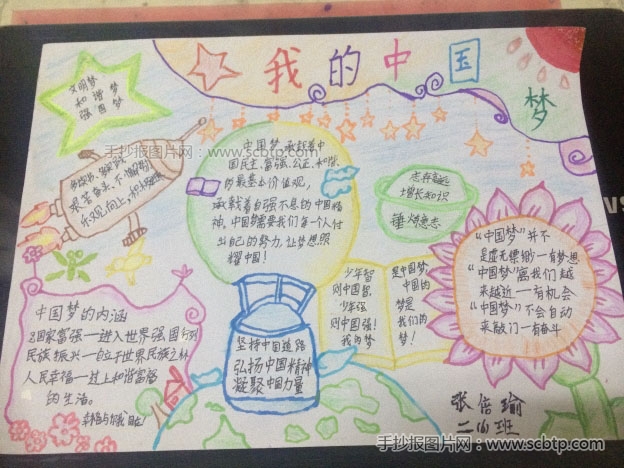 我的中国梦
文明梦
和谐梦
强国梦
手抄报图片网：www.scbtp.com
中国梦,承载着中
国民主、富强、公正、和谐
的最基本价值观,
承载着自强不息的中国精
神,中国梦需要我们每一个人付
出自己的努力,让梦想照
耀中国!
志存高远
增长知识
锤炼意志
“中国梦”并不
是虚无缥缈—有梦想
“中国梦”离我们越
来越近—有机会
“中国梦”不会自动
来敲门—有奋斗
少年智
则中国智,
少年强
则中国强!
我的梦
是中国梦,
中国的
梦是
我们的
梦!
中国梦的内涵
国家富强—进入世界强国行列
民族振兴—位于世界民族之林
人民幸福—过上和谐富裕
的生活。
坚持中国道路
弘扬中国精神
凝聚中国力量
手抄报图片网：www.scbtp.com